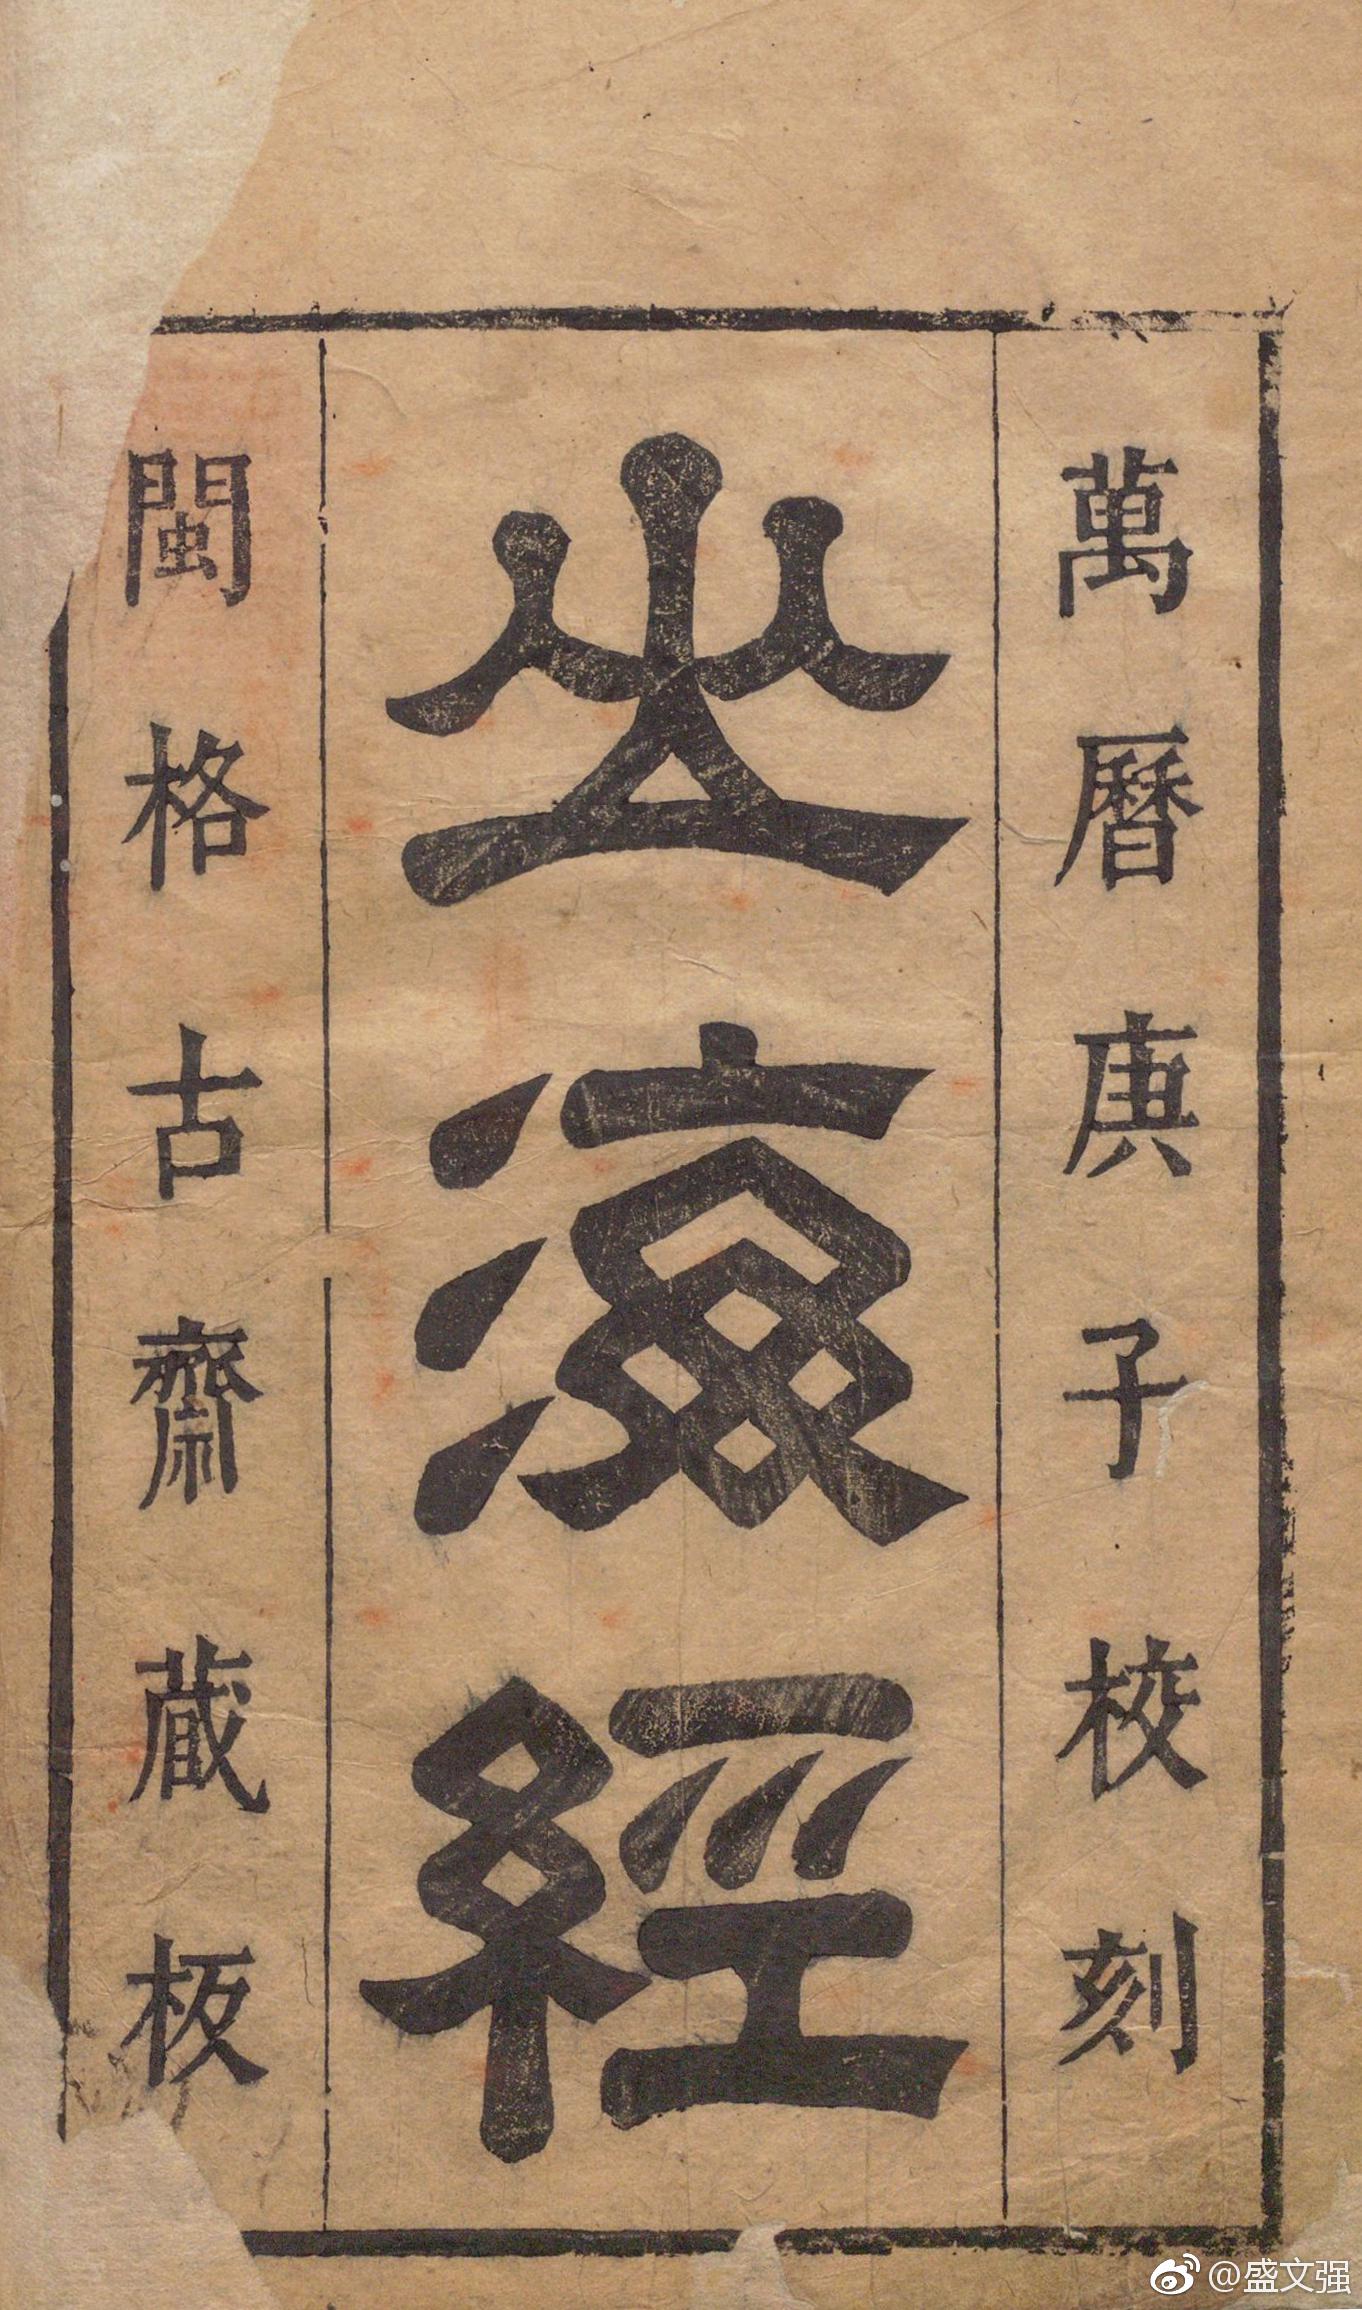 萬曆庚子校刻
山海經
閩格古齋藏板
@盛文强